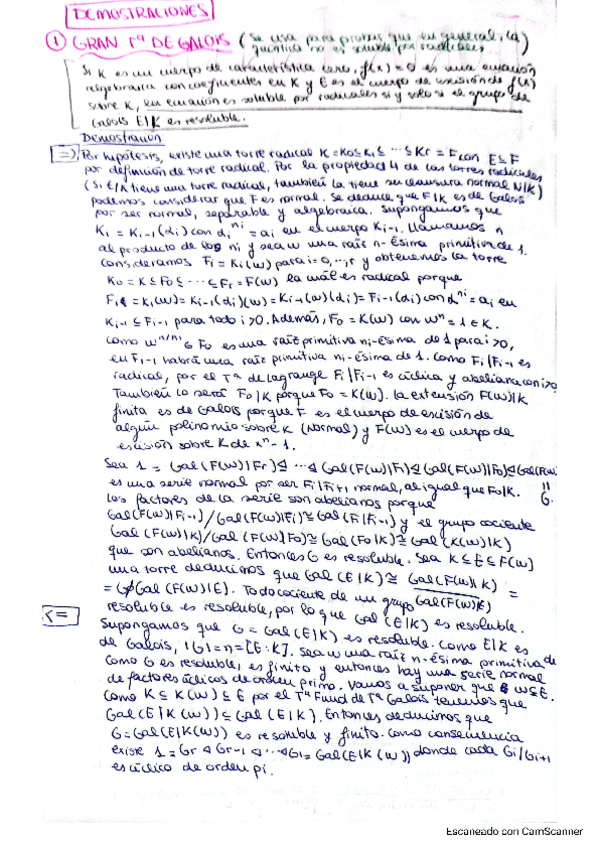 DEMOSTRACIONES
① GRAN Tª DE GALOIS (Se usa para probar que en general, la
quíntica no es soluble por radicales)
Si K es un cuerpo de característica cero, f(x) = 0 es una ecuación
algebraica con coeficientes en K y E es el cuerpo de escisión de f(x)
sobre K, la ecuación es soluble por radicales si y solo si el grupo de
Galois E|K es resoluble.
Demostración
=>) Por hipótesis, existe una torre radical K=K0⊆K1⊆ ... ⊆Kr = F con E⊆F
por definición de torre radical. Por la propiedad 4 de las torres radicales
(Si E/K tiene una torre radical, también la tiene su clausura normal N|K)
podemos considerar que F es normal. Se deduce que F|K es de Galois
por ser normal, separable y algebraica. Supongamos que
Ki = Ki-1(αi) con αi^ni = ai en el cuerpo Ki-1. Llamamos n
al producto de los ni y sea w una raíz n-ésima primitiva de 1.
Consideramos Fi = Ki(w) para i=0,...,r y obtenemos la torre
K0 = K ⊆ F0 ⊆ ... ⊆ Fr = F(w) la cual es radical porque
Fi = Ki(w) = Ki-1(αi)(w) = Ki-1(w)(αi) = Fi-1(αi) con α^ni = ai en
Ki-1 ⊆ Fi-1 para todo i>0. Además, F0 = K(w) con w^n = 1 ∈ K.
Como w^n/ni ∈ F0 es una raíz primitiva ni-ésima de 1 para i>0,
en Fi-1 habrá una raíz primitiva ni-ésima de 1. Como Fi|Fi-1 es
radical, por el Tª de Lagrange Fi|Fi-1 es cíclica y abeliana con i>0
También lo será F0|K porque F0 = K(w). La extensión F(w)|K
finita es de Galois porque F es el cuerpo de escisión de
algún polinomio sobre K (normal) y F(w) es el cuerpo de
escisión sobre K de x^n - 1.
Sea 1 = Gal(F(w)|Fr) ⊴ ... ⊴ Gal(F(w)|F1) ⊴ Gal(F(w)|F0) ⊴ Gal(F(w)
es una serie normal por ser Fi|Fi+1 normal, al igual que F0|K. G.
Los factores de la serie son abelianos porque
Gal(F(w)|Fi-1)/Gal(F(w)|Fi) ≅ Gal(Fi|Fi-1) y el grupo cociente
Gal(F(w)|K)/Gal(F(w)|F0) ≅ Gal(F0|K) ≅ Gal(K(w)|K)
que son abelianos. Entonces G es resoluble. Sea K ⊆ E ⊆ F(w)
una torre deducimos que Gal(E|K) ≅ Gal(F(w)|K) / Gal(F(w)|E) =
= G/Gal(F(w)|E). Todo cociente de un grupo
resoluble es resoluble, por lo que Gal(E|K) es resoluble.
<= Supongamos que G = Gal(E|K) es resoluble. Como E|K es
de Galois, |G| = n = [E:K]. Sea w una raíz n-ésima primitiva de
Como G es resoluble, es finito y entonces hay una serie normal
de factores cíclicos de orden primo. Vamos a suponer que w∈E.
Como K ⊆ K(w) ⊆ E por el Tª Fund de Tª Galois tenemos que
Gal(E|K(w)) ⊆ Gal(E|K). Entonces deducimos que
G=Gal(E|K(w)) es resoluble y finito. Como consecuencia
existe 1 = Gr ⊲ Gr-1 ⊲ ... ⊲ G1 = Gal(E|K(w)) donde cada Gi/Gi+1
es cíclico de orden pi.
Escaneado con CamScanner